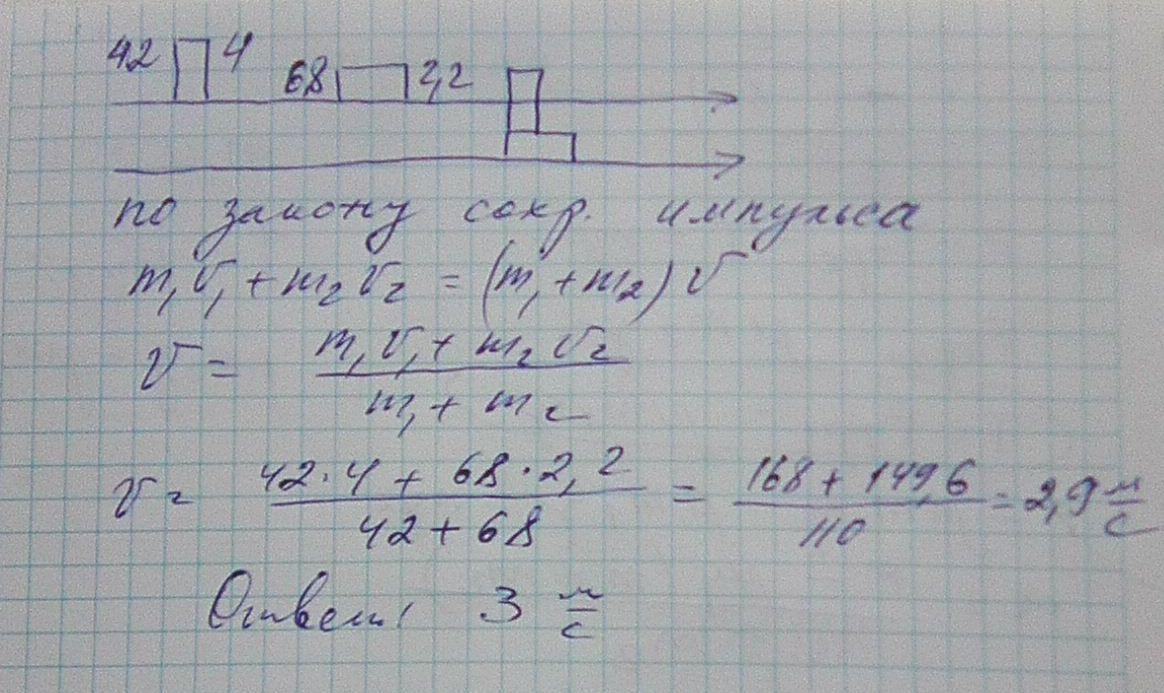 42 4 68 2,2
по закону сохр. импульса
m₁v₁ + m₂v₂ = (m₁ + m₂)v
v = (m₁v₁ + m₂v₂) / (m₁ + m₂)
v = (42·4 + 68·2,2) / (42 + 68) = (168 + 149,6) / 110 = 2,9 м/с
Ответ: 3 м/с